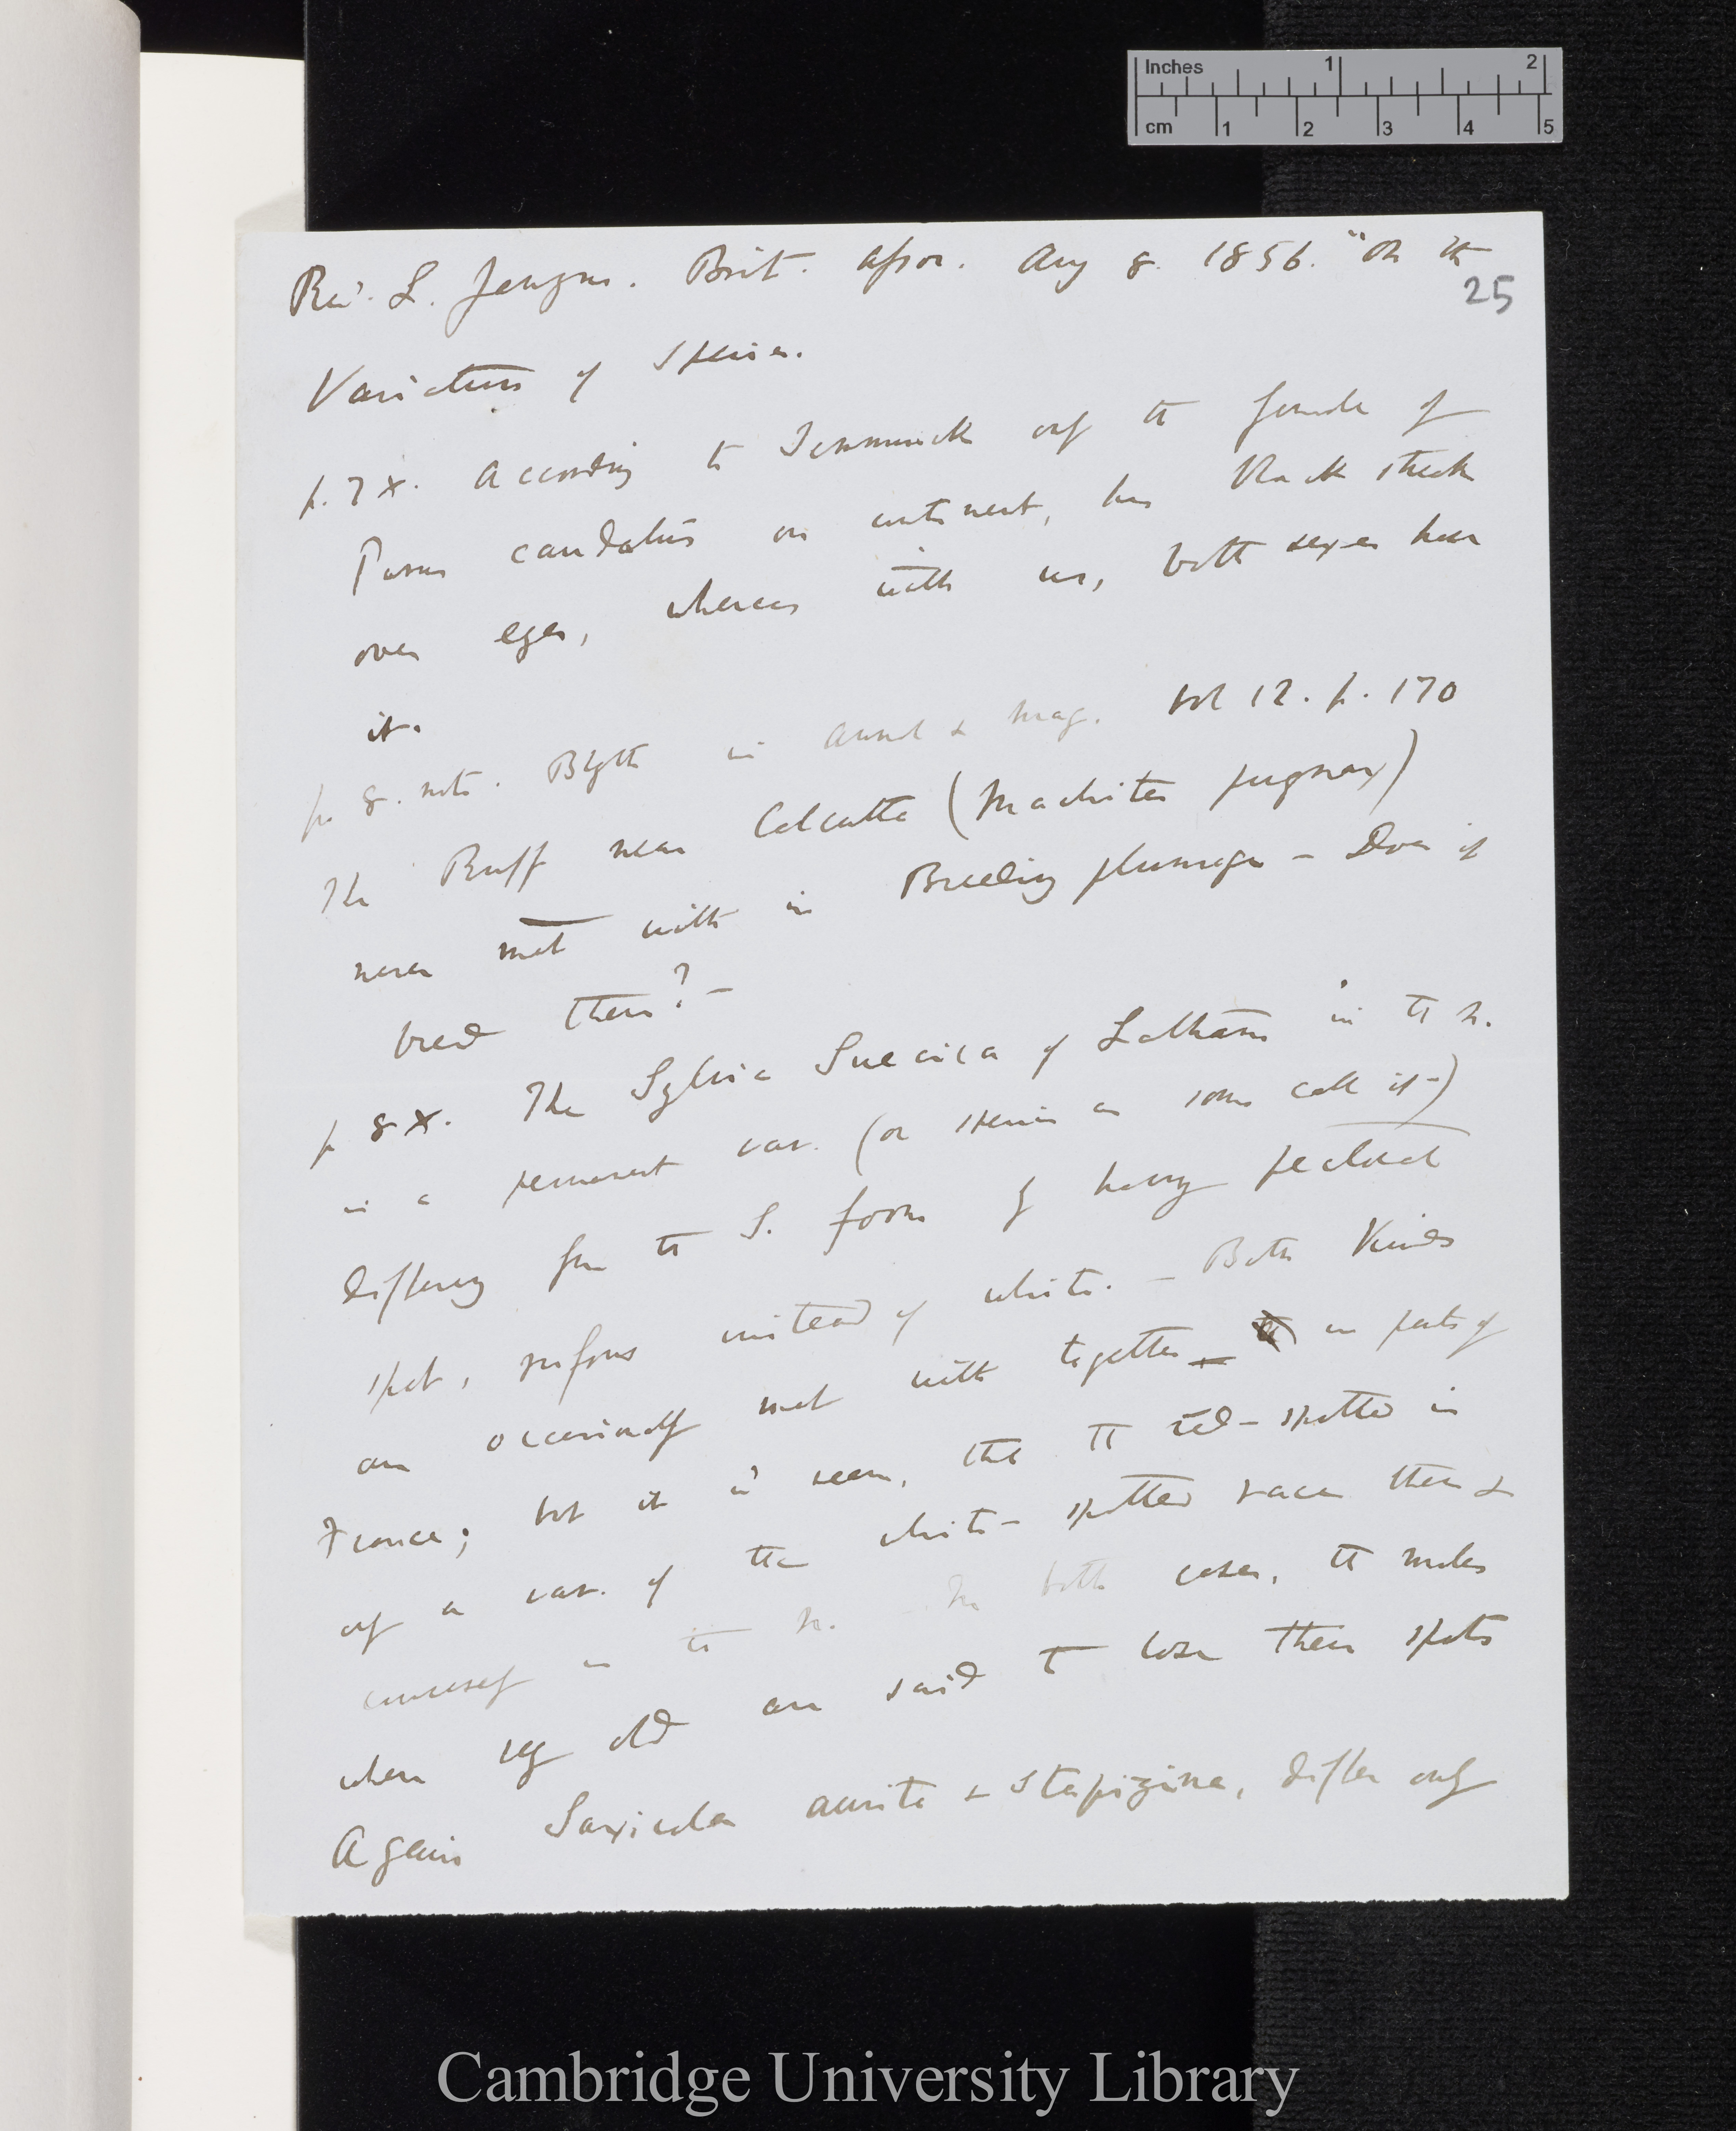 Inches 1 2
cm 1 2 3 4 5
Rev. L. Jenyns. Brit. Assoc. Aug 8. 1856. "On the
25
Variation of Species.
p. 7 x. According to Temminck only the female of
Parus caudatus on continent, has black streak
over eyes, whereas with us, both sexes have
it.
p 8. note. Blyth in Annal & Mag. vol 12. p. 170
The Ruff near Calcutta (Machetes pugnax)
never met with in Breeding plumage – Does it
breed there? –
p 8 x. The Sylvia Suecica of Latham in the N.
is a permanent var. (or species as some call it –)
differing from the S. form by having pectoral
spot, rufous instead of white. – Both Kinds
are occasionally met with together – in parts of
France; but it is seen, that the red-spotted is
only a var. of the white-spotted race there &
conversely in the N. – In both cases, the males
when very old are said to lose their spots
Again Saxicola aurita & Stapazina, differ only
Cambridge University Library